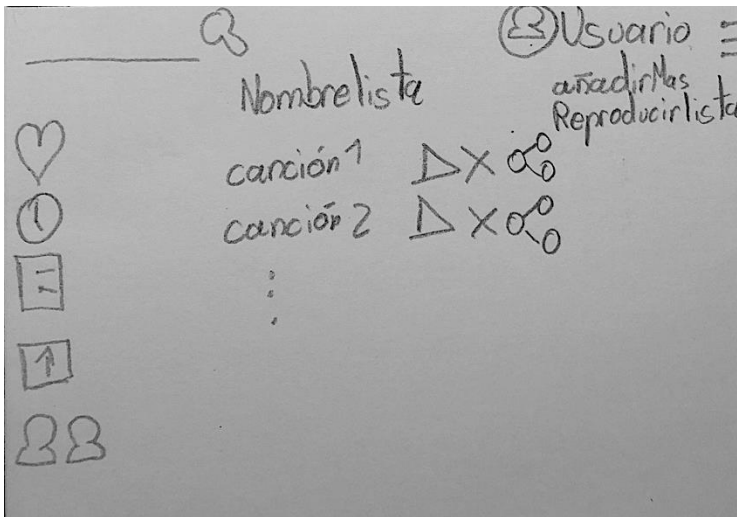 Usuario
Nombrelista
añadirMas
Reproducirlista
canción 1
canción 2